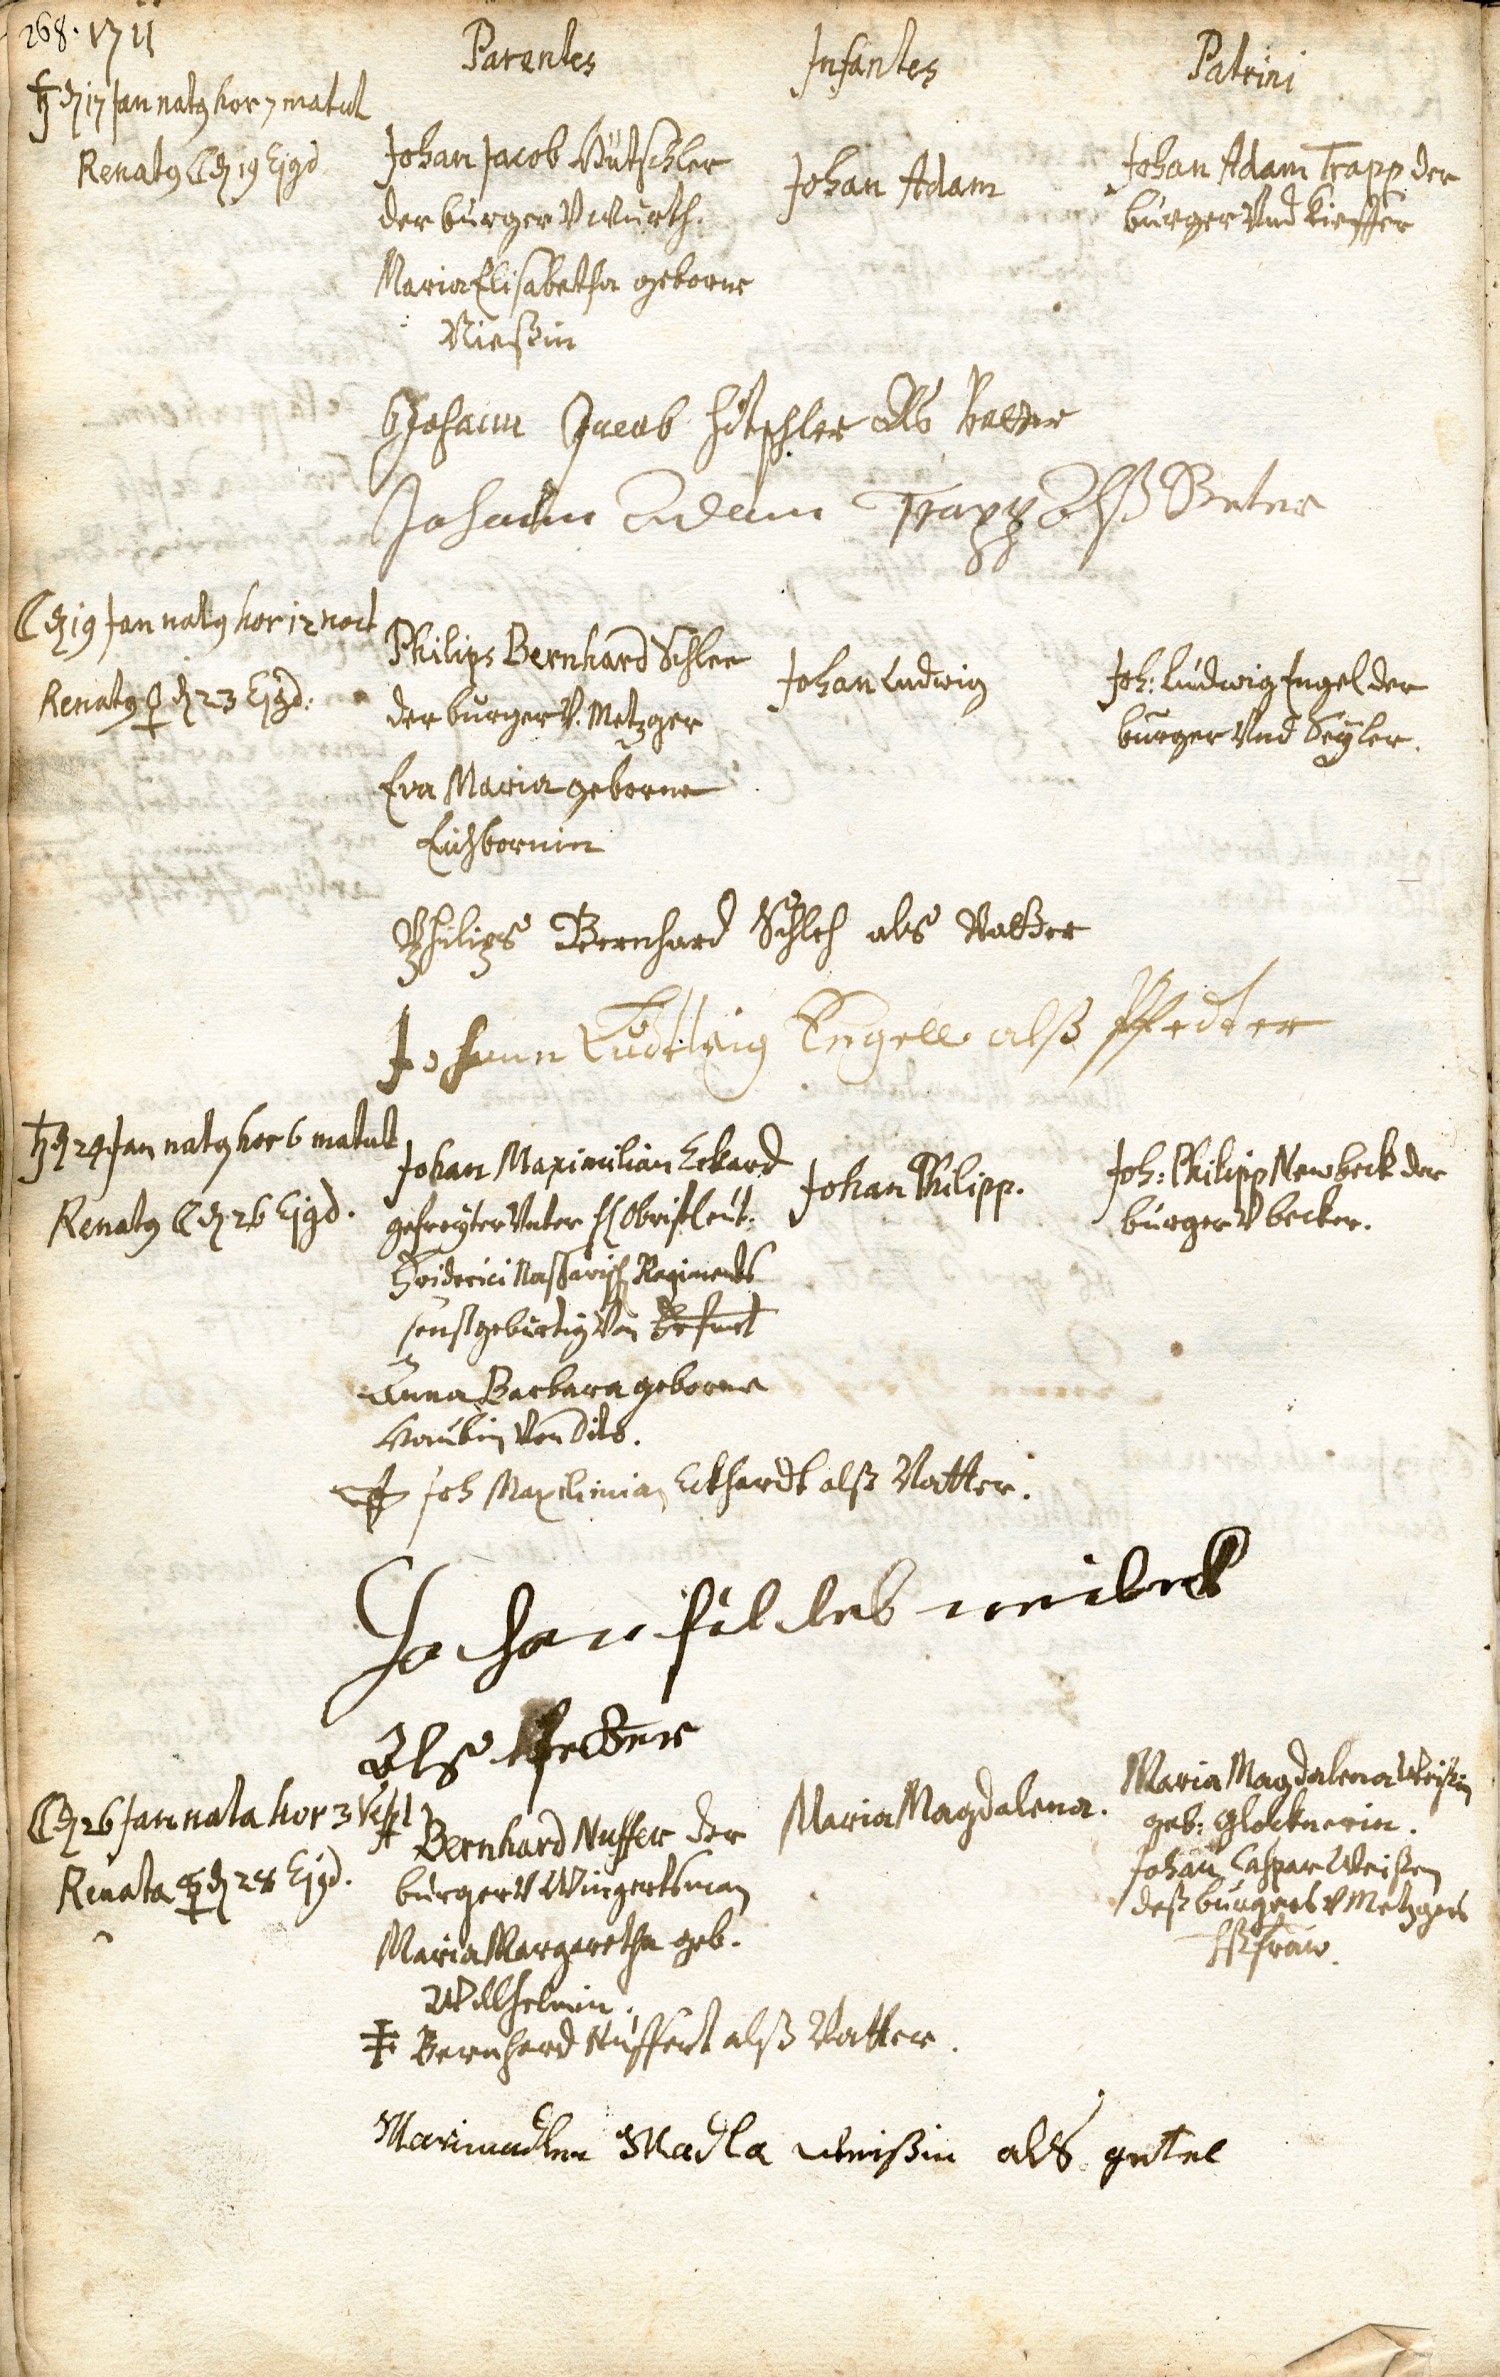 268. 1711
Parentes Infantes Patrini
♄ d 17 Jan natg hor 7 matut
Renatg ☾ d 19 Ejgd
Johan Jacob Hütschler
der burger V würth.
Maria Elisabetha geborne
Nießin
Johan Adam
Johan Adam Trapp der
burger Vnd Kieffer
Johann Jacob Hötschler Als Vatter
Johann Adam Trapp Alß Peter
☾ d 19 Jan natg hor 12 noct
Renatg ♀ d 23 Ejgd:
Philips Bernhard Schlee
der burger V. Metzger
Eva Maria geborne
Eichbornin
Johan Ludwig
Joh: Ludwig Engel der
burger Vnd Seyler.
Philips Bernhard Schleh als Vatter
Johann Ludtwig Engell alß Pfedter
♄ d 24 Jan natg hor 6 matut
Renatg ☾ d 26 Ejgd.
Johan Maximilian Eckard
gefreyter Vnter H Obristleut.
Heiderici Naßawisch Regiments
sonst gebürtig Von Erfurt
Anna Barbara geborne
Von Dils.
Johan Philipp.
Joh: Philipp Newbeck der
burger V becker.
Joh Maxeliminian Eckhardt alß Vatter.
Johan fillibs neibeck
Als Petter
☾ d 26 Jan nata hor 3 Vesp
Renata ☿ d 28 Ejgd.
Bernhard Nuffer der
burger V Wingertsman
Maria Margaretha geb.
Willhelmin.
Maria Magdalena.
Maria Magdalena Weißin
geb: Glocknerin.
Johan Caspar Weißen
deß burgers V Metzgers
Hßfraw.
Bernhard Nuffert alß Vatter.
Madla weißin als getel